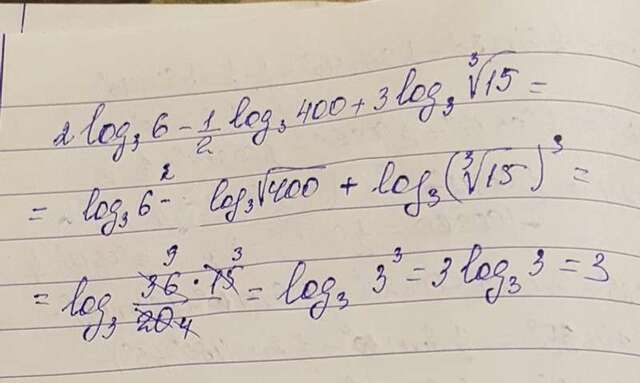 2 log₃ 6 - 1/2 log₃ 400 + 3 log₃ ∛15 =
= log₃ 6² - log₃ √400 + log₃ (∛15)³ =
= log₃ (36 · 15)/20 9 3 4 = log₃ 3³ = 3 log₃ 3 = 3